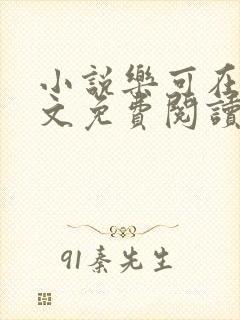 小説樂可在
文免費閱讀
91秦先生